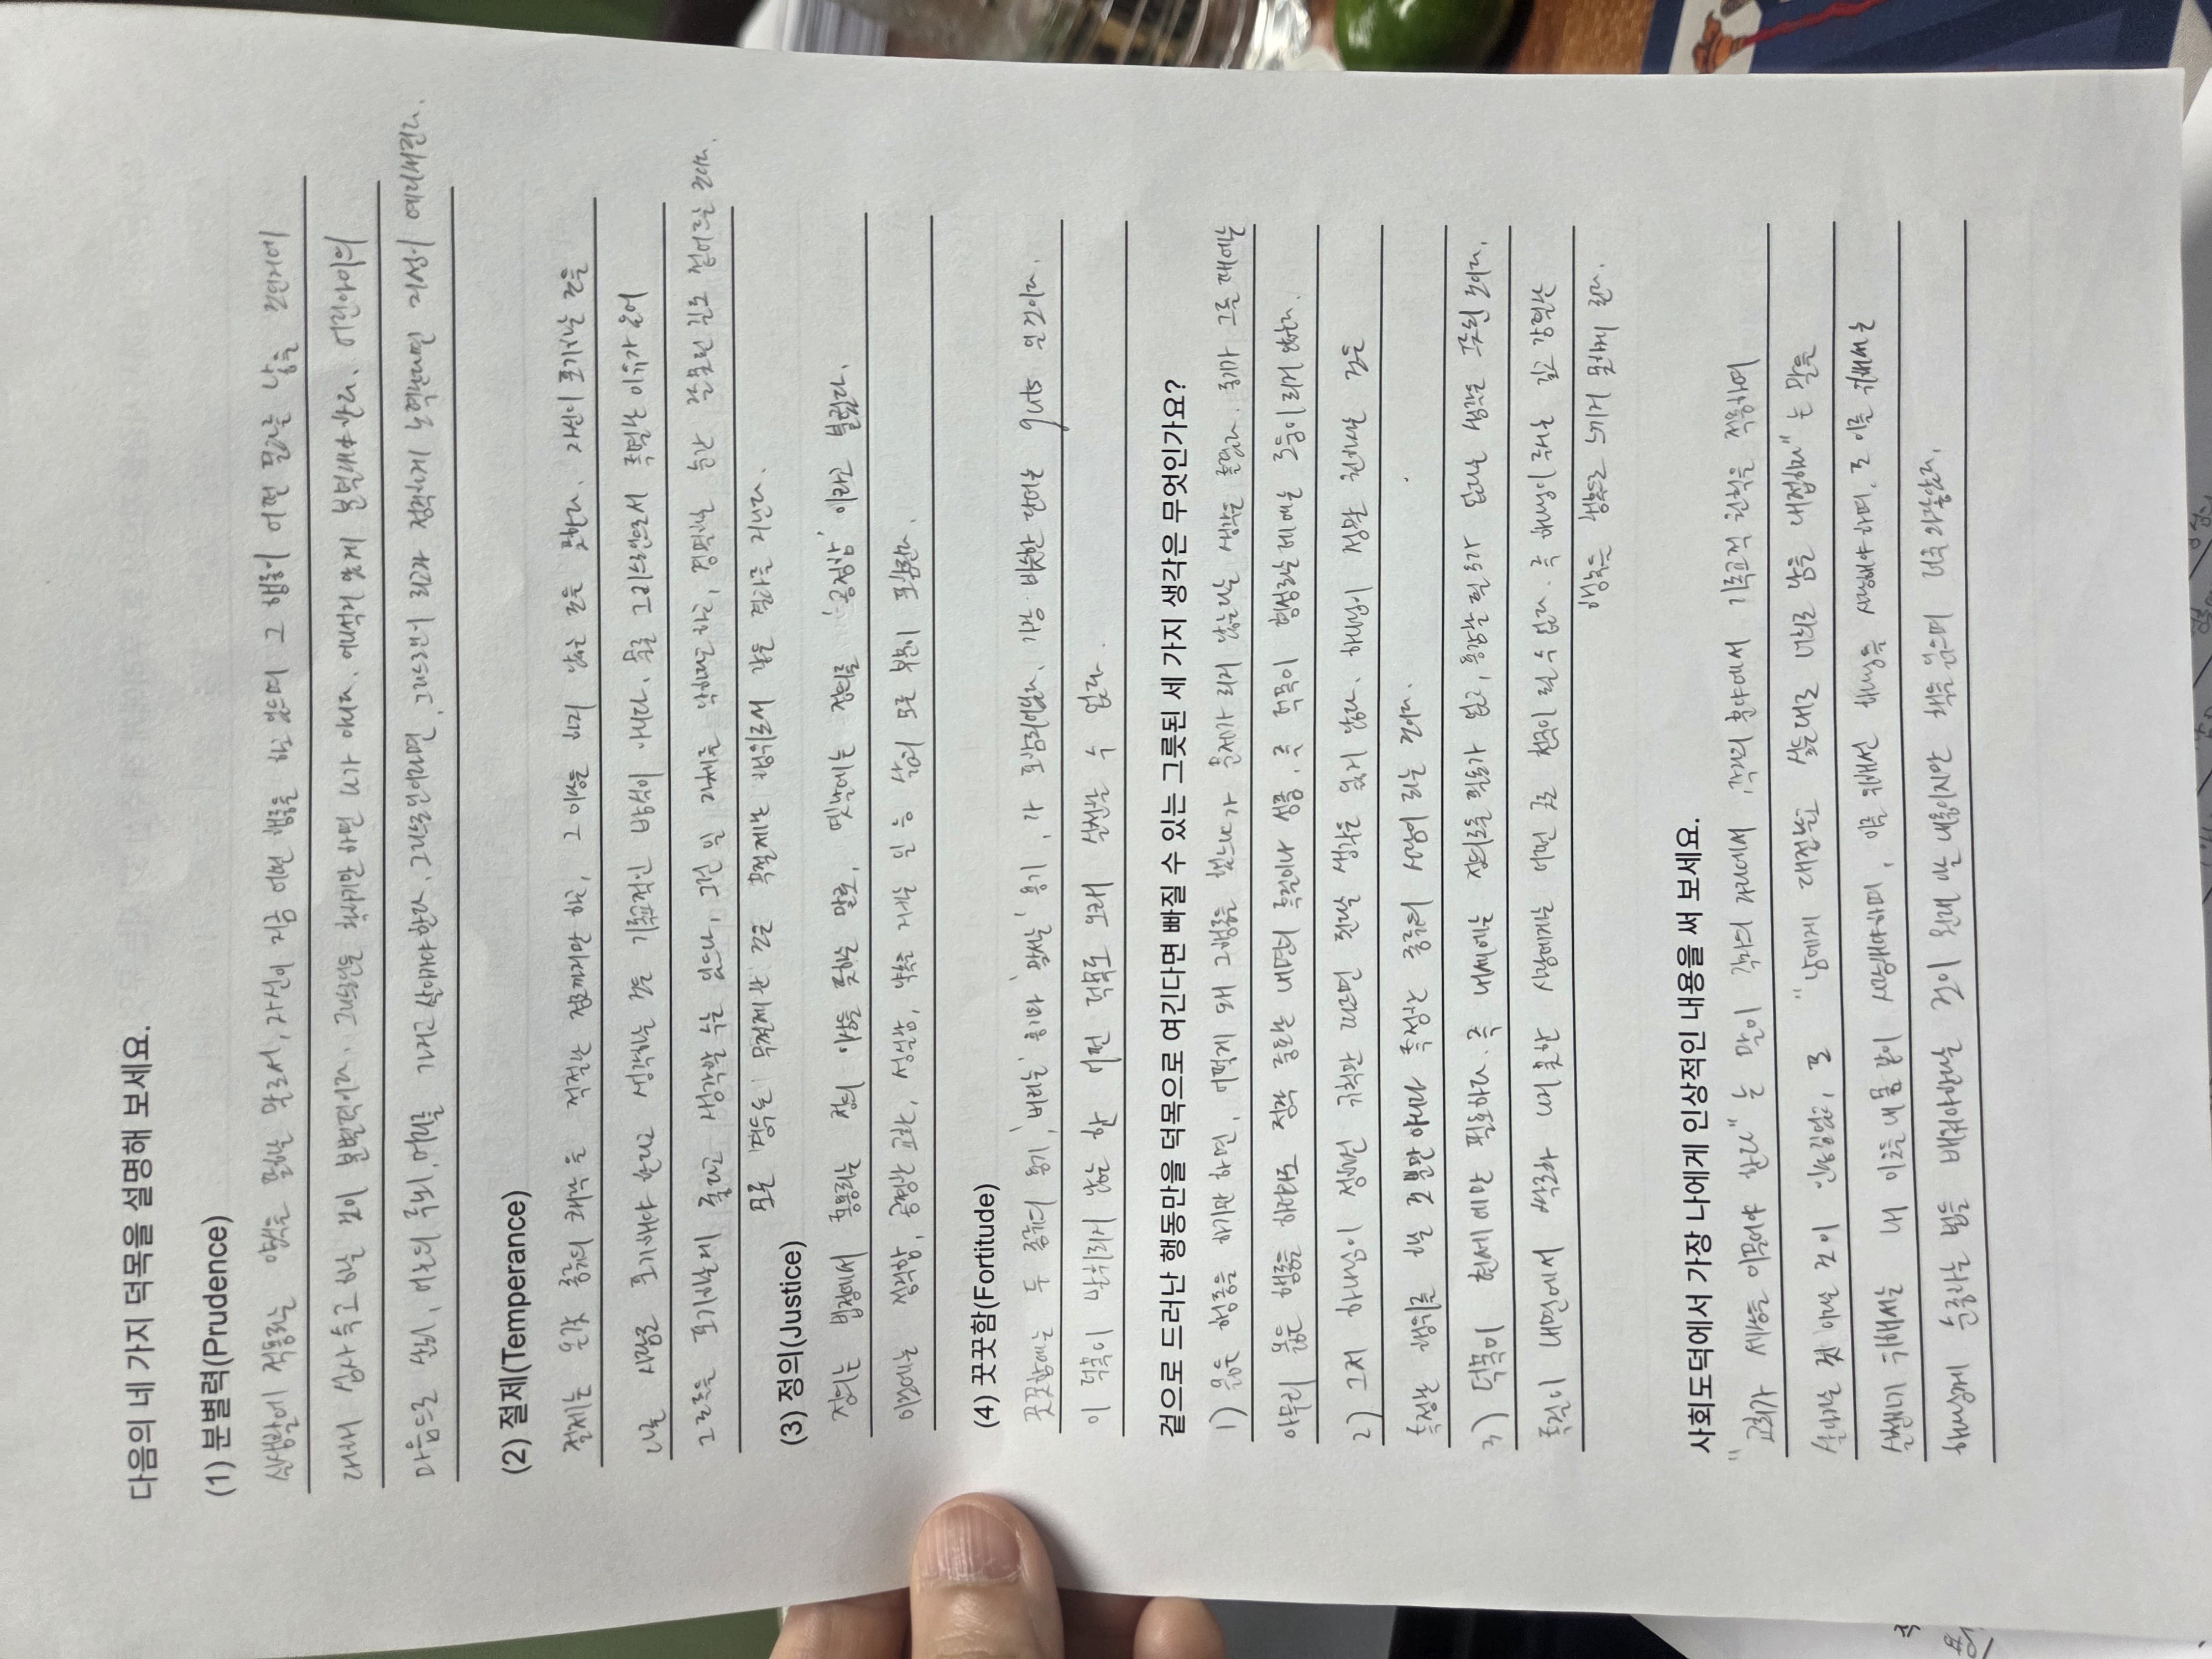 다음의 네 가지 덕목을 설명해 보세요.
(1) 분별력(Prudence)
실생활에 적용하는 양식을 말하는 말로서, 자신이 지금 어떤 행동을 하고 있으며 그 행동이 어떤 결과를 낳을 것인지에
대해 심사숙고 하는 것이 분별력이다. 그리스도인은 착하기만 하면 되가 아니다. 예의적 있게 분별해야 한다. 어린아이의
마음으로 순비, 어른의 두뇌, 머리를 가지고 살아가야 한다. 그리스도인이라면, 그리스도께서 리라 정직하게 노력한다면 지성이 예리해진다.
(2) 절제(Temperance)
절제는 온갖 종류의 쾌락을 적절한 정도까지만 하고, 그 이상을 하지 않는 것을 말한다. 자신이 포기하는 것을
남들 사람도 포기해야 한다고 생각하는 것은 기독교적인 방식이 아니다. 술을 그리스도인으로서 특별한 이유가 있어
그것을 포기하는게 좋다고 생각할 수는 있으나, 그건 일 자체를 악하다면 하고, 경멸하는 순간 잘못된 길로 접어드는 것이다.
모든 경우든 무절제는 것은 무절제는 행위로서 같은 평가를 지닌다.
(3) 정의(Justice)
정의는 법정에서 통용되는 정의 이상을 뜻하는 말로, 옛날에는 정의를 '공정함' 이라고 불렀다.
이것에는 정직함, 공평한 교환, 성실함, 약속 지키는 일 등 삶의 모든 부분이 포함된다.
(4) 꿋꿋함(Fortitude)
꿋꿋함에는 두 종류의 용기, '버티는' 용기와 '맞서는' 용기, 가 포함되어있다. 가장 비슷한 단어는 guts 일것이다.
이 덕목이 뒷받쳐지지 않는 한 어떤 덕목도 오래 실천할 수 없다.
겉으로 드러난 행동만을 덕목으로 여긴다면 빠질 수 있는 그릇된 세 가지 생각은 무엇인가요?
1) 옳은 행동을 하기만 하면, 어떻게 왜 그행동을 했느냐가 문제가 되지 않는다는 생각을 품는다. 동기가 그를 때에는
아무리 옳은 행동을 하더라도 정작 중요한 내면의 특질이나 성품, 즉 덕목이 형성되는데에는 도움이 되지 않는다.
2) 그저 하나님이 정해진 규칙만 따르면 된다는 생각을 잊게 않다. 하나님이 정말 원하시는 것은
특정한 행위를 하는 것 뿐만 아니라 특정한 종류의 사람이 되는 것이다.
3) 덕목이 현세에만 필요하다. 즉 내세에는 정의로울 필요가 없고, 용감할 필요가 없다는 생각은 그릇된 것이다.
특질이 내면에서 싹트지 못한 사람에게는 어떤 곳도 천국이 될 수 없다. 즉 하나님이 주시는 깊고 강렬한
행복을 행복으로 느끼지 못하게 된다.
사회도덕에서 가장 나에게 인상적인 내용을 써 보세요.
"교회가 세상을 이끌어야 한다" 는 말이 각자의 자리에서, 각자의 분야에서 기독교적 원칙을 적용하여
살아가는 것이 아닐까 것이 인상깊었고, 또 "남에게 대접받고 싶은대로 너희도 남을 대접하라" 는 말을
실행하기 위해서는 내 이웃을 내몸 같이 사랑해야하며, 이를 위해선 하나님을 사랑해야 하며, 또 이를 위해서는
하나님께 순종하는 법을 배워야한다는 것이 원래 아는 내용이지만 책을 읽으며 더욱 와닿았다.